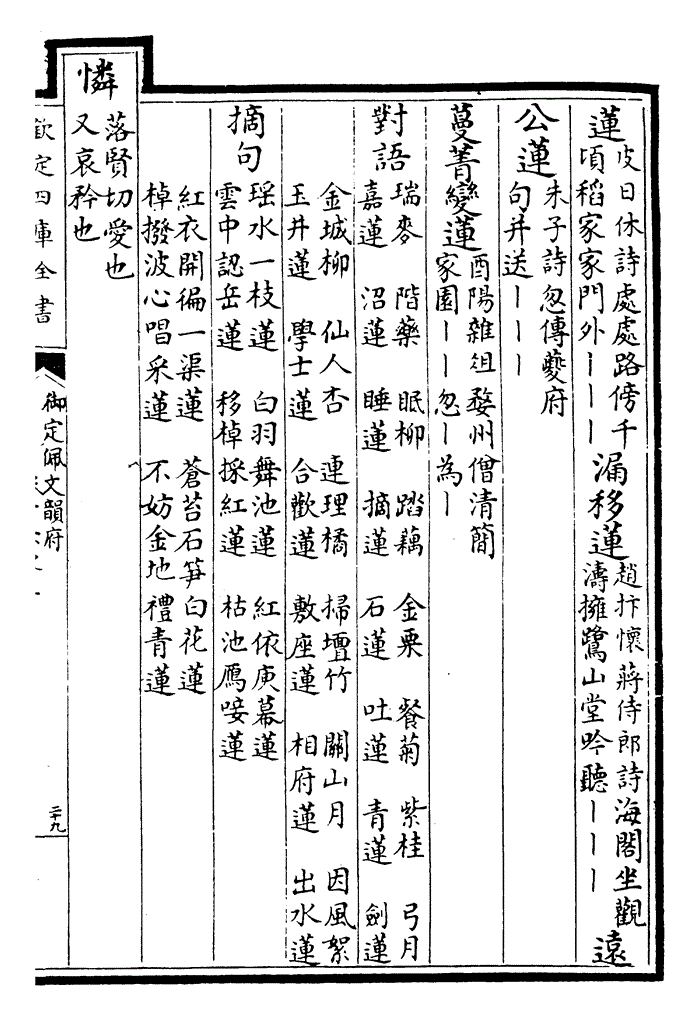 蓮 皮日休詩處處路傍千
頃稻家家門外丨丨丨 漏移蓮 趙抃懷蔣侍郎詩海閣坐觀
濤擁鷺山堂吟聽丨丨丨 遠
公蓮 朱子詩忽傳夔府
句并送丨丨丨
蔓菁變蓮 酉陽雜俎婺州僧清簡
家園丨丨忽丨為丨
對語 瑞麥 階藥 眠柳 踏藕 金粟 餐菊 紫桂 弓月
嘉蓮 沼蓮 睡蓮 摘蓮 石蓮 吐蓮 青蓮 劍蓮
金城柳 仙人杏 連理橘 掃壇竹 關山月 因風絮
玉井蓮 學士蓮 合歡蓮 敷座蓮 相府蓮 出水蓮
摘句 瑶水一枝蓮 白羽舞池蓮 紅依庾幕蓮
雲中認岳蓮 移棹採紅蓮 枯池鴈唼蓮
紅衣開徧一渠蓮 蒼苔石笋白花蓮
棹撥波心唱采蓮 不妨金地禮青蓮
憐 落賢切愛也
又哀矜也
欽定四庫全書
御定佩文韻府
二十九